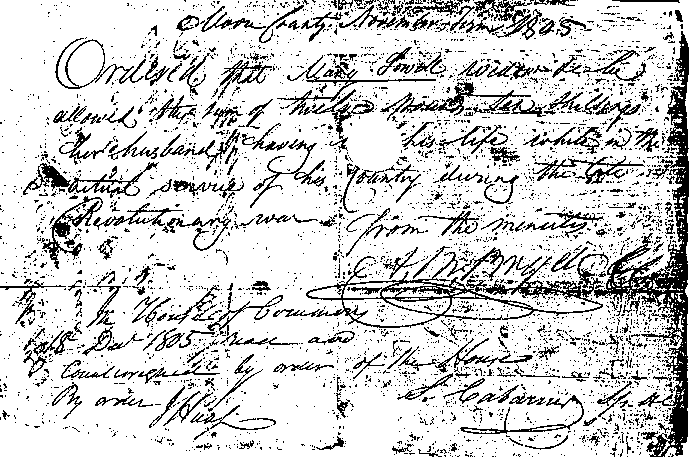 Moore County November Term 1805
Ordered that Mary Sowell widow be
allowed the sum of twelve pounds ten Shillings
her husband having his life while in the
actual service of his County during the late
Revolutionary war from the minutes
In House of Commons
18 Decr 1805 read and
Countersigned by order of the House
By order S. Cabarrus Sp. H C